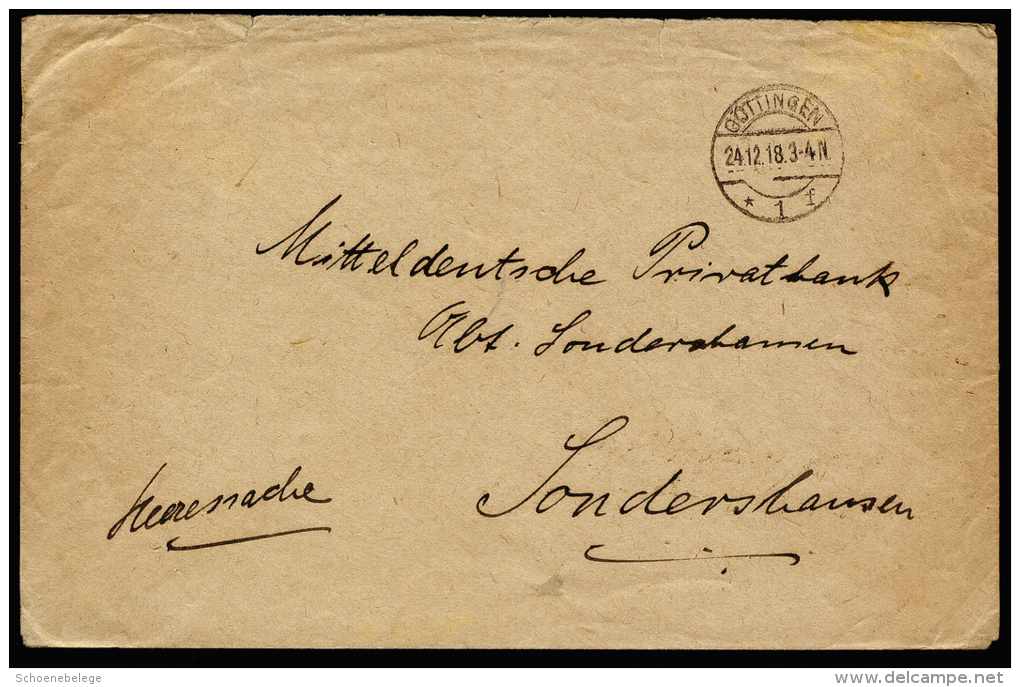 GÖTTINGEN
24.12.18.3-4N.
* 1 f
Mitteldeutsche Privatbank
Abt. Sondershausen
Sondershausen
Heeressache
Schoenebelege
delcampe.net